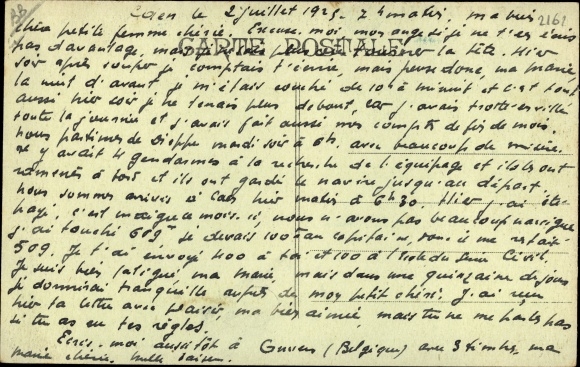 Caen le 2 juillet 1925. 7 h matin, ma bien
chère petite femme chérie. Excuse-moi, mon ange, si je ne t'écris
pas davantage, mais tourner la tête. Hier
CARTE POSTALE
soir après souper je comptais t'écrire, mais pense donc, ma Marie,
la nuit d'avant je m'étais couché de 10h à minuit et c'est tout
aussi hier soir je ne tenais plus debout, car j'avais trotté en ville
toute la journée et j'avais fait aussi mes comptes de fin de mois.
Nous partîmes de Dieppe mardi soir à 6h. avec beaucoup de misère.
il y avait 4 gendarmes à la recherche de l'équipage et ils les ont
ramenés à bord et ils ont gardé le navire jusqu'au départ.
Nous sommes arrivés à Caen hier matin à 6h30. Hier j'ai été
payé, c'est maigre ce mois-ci, nous n'avons pas beaucoup navigué
j'ai touché 609 je devais 100 au capitaine, donc il me restait
509. Je t'ai envoyé 400 à toi et 100 à l'
Je suis bien fatigué, ma Marie, mais dans une quinzaine de jours
je dormirai tranquille auprès de mon petit chéri. J'ai reçu
hier ta lettre avec plaisir, ma bien aimée, mais tu ne me parles pas
si tu as eu tes règles.
Écris-moi aussitôt à (Belgique) avec 3 timbres, ma
Marie chérie. Mille baisers.
2162